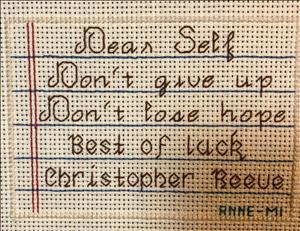 Dear Self
Don't give up
Don't lose hope
Best of luck
Christopher Reeve
ANNE-MI